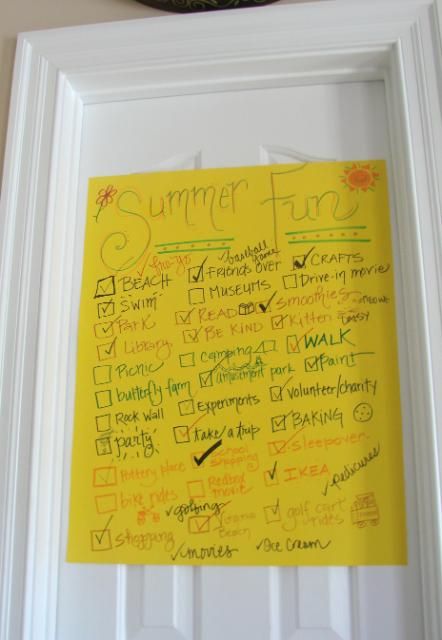 Summer Fun
fro-yo baseball game
BEACH FRIENDS OVER CRAFTS
Swim MUSEUMS Drive-in movie
Park READ Smoothies
Library BE KIND Kitten MEOWE DAISY
Picnic camping WALK
butterfly farm amusement park Paint
Rock Wall Experiments volunteer/charity
party take a trip BAKING
Pottery place School Shopping Sleepover
bike rides Redbox movie IKEA pedicures
golfing
shopping Virginia Beach golf cart rides
movies Ice Cream